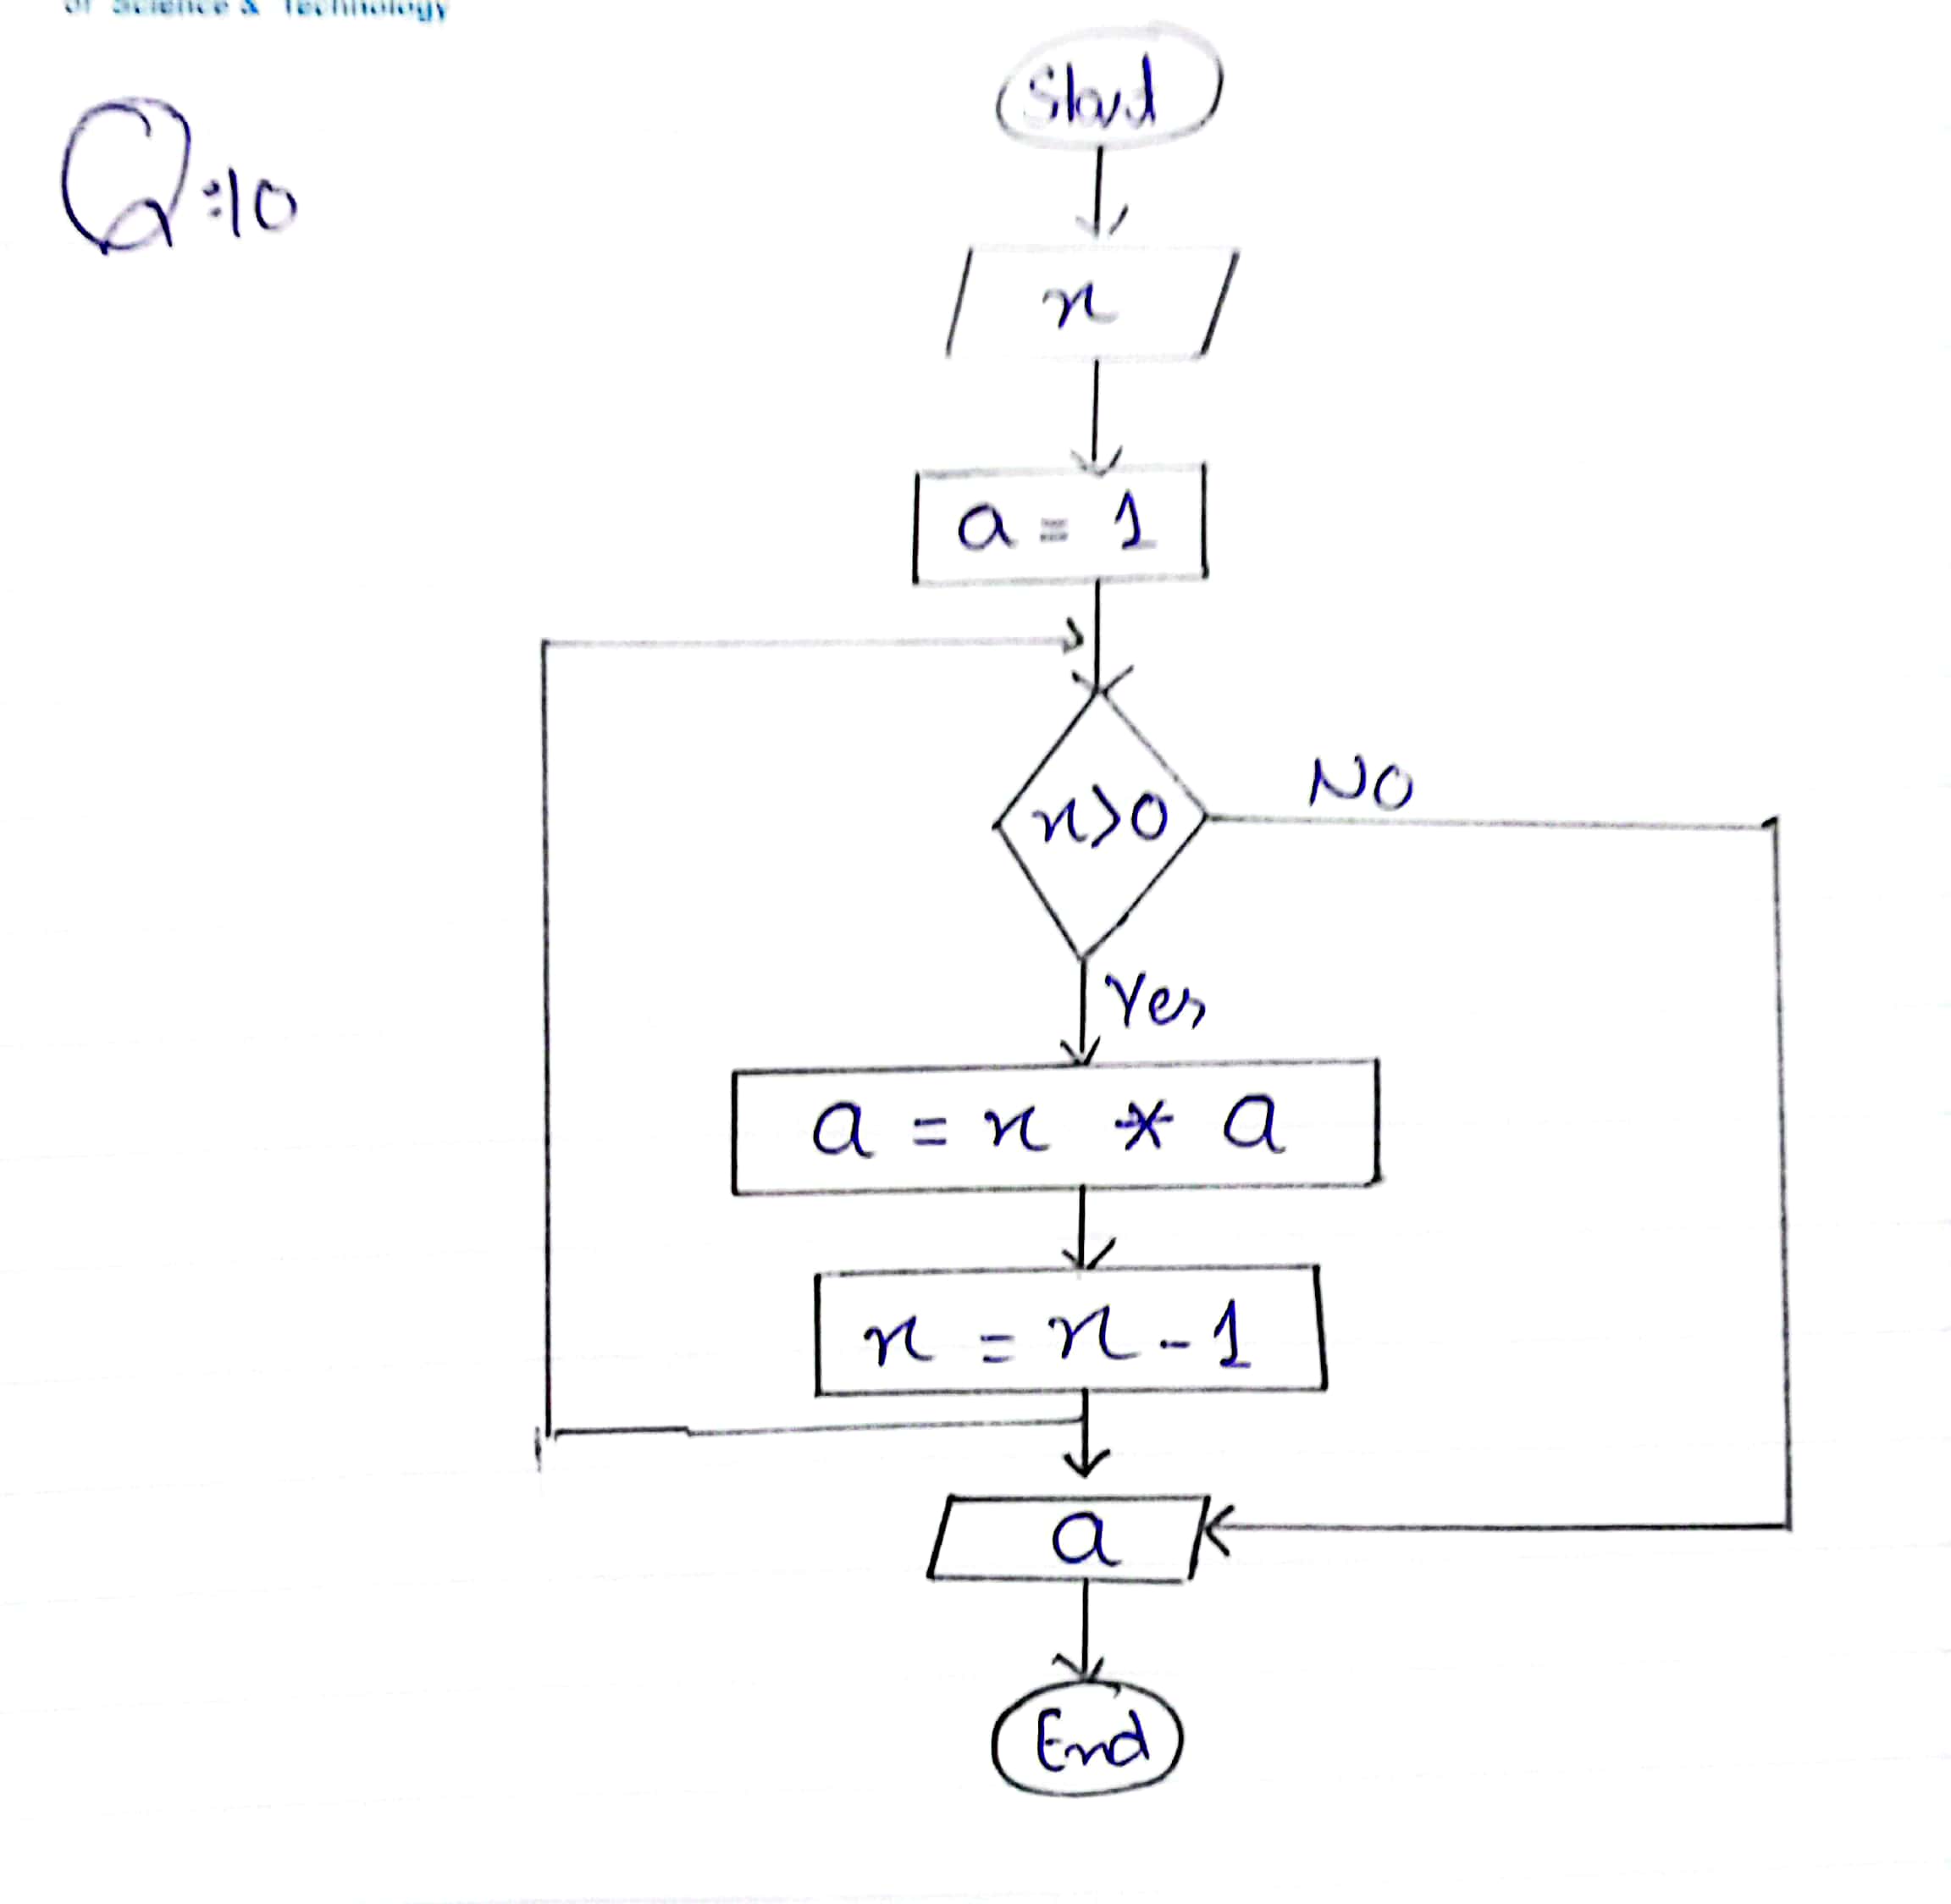 of Science & Technology
Q:10
Start
n
a = 1
n>0
NO
Yes
a = n * a
n = n - 1
a
End